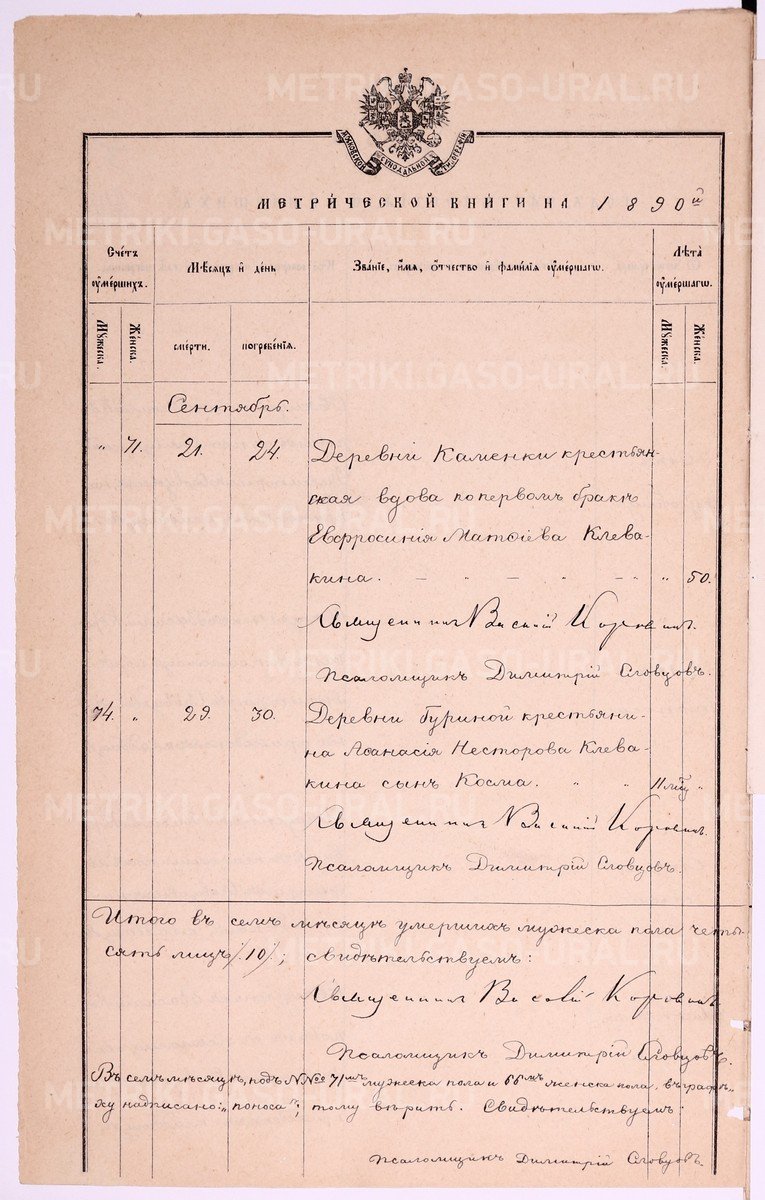 METRIKI.GASO-URAL.RU
МОСКОВСКОЙ СѴНОДАЛЬНОЙ ТИПОГРАФІИ
МЕТРИ́ЧЕСКОЙ КНИ́ГИ НА 1890й
Сче́тъ оуме́ршихъ.
Мѣ́сяцъ и де́нь
Зва́нїе, и́мя, о́тчество и фами́лїя оуме́ршагѡ.
Лѣ́та оуме́ршагѡ.
Мꙋ́жеска.
Же́нска.
сме́рти.
погребе́нїя.
Мꙋ́жеска.
Же́нска.
Сентябрь.
" 71. 21. 24. Деревни Каменки крестьян-
ская вдова по первомъ бракѣ
Евфросинія Матѳіева Клева-
кина. – " – " – " " 50.
Священникъ Василій Коровинъ.
Псаломщикъ Димитрій Словцовъ.
74. " 29. 30. Деревни Буриной крестьяни-
на Аѳанасія Несторова Клева-
кина сынъ Косма. " " 11 "
Священникъ Василій Коровинъ.
Псаломщикъ Димитрій Словцовъ.
Итого въ семъ мѣсяцѣ умершихъ мужеска пола
лицъ /.10/.; свидѣтельствуемъ:
Священникъ Василій Коровинъ
Псаломщикъ Димитрій Словцовъ.
Въ семъ мѣсяцѣ, подъ №№ 71мъ мужеска пола и 66мъ женска пола, въ графѣ
надписано: "поноса"; тому вѣрить. Свидѣтельствуемъ:
Псаломщикъ Димитрій Словцовъ.